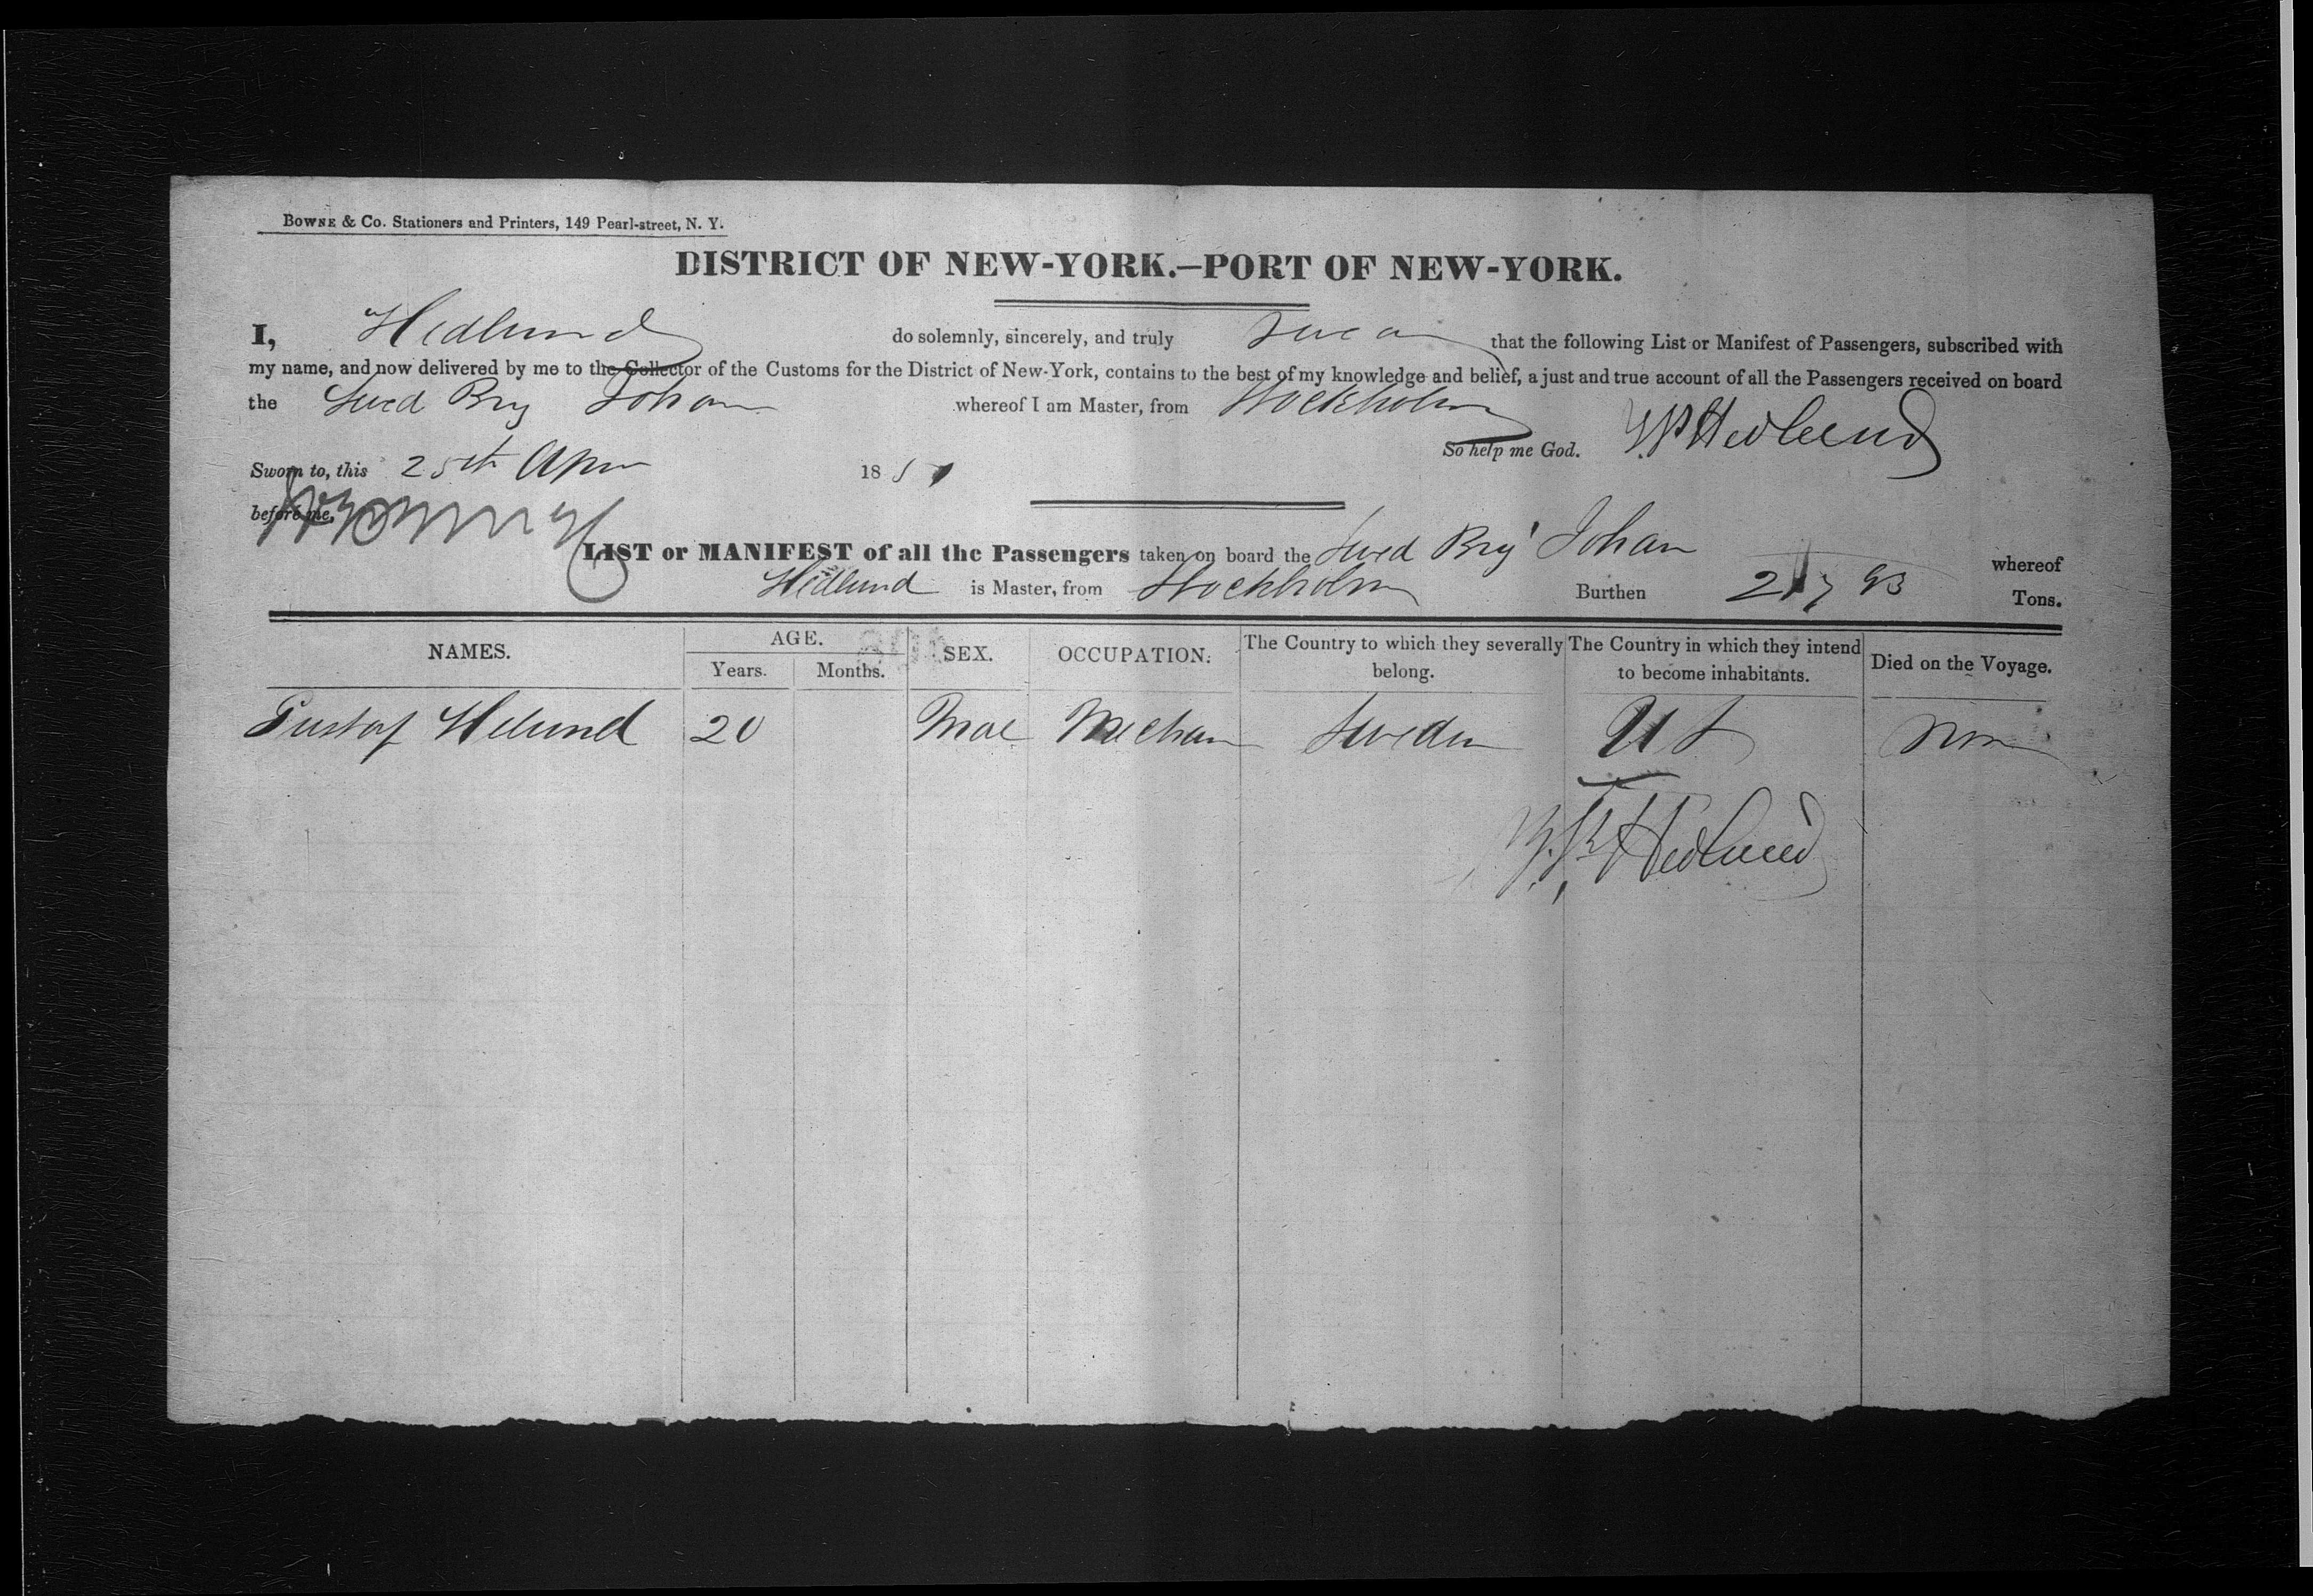 BOWNE & Co. Stationers and Printers, 149 Pearl-street, N. Y.
DISTRICT OF NEW-YORK.—PORT OF NEW-YORK.
I, Hedlund do solemnly, sincerely, and truly swear that the following List or Manifest of Passengers, subscribed with
my name, and now delivered by me to the Collector of the Customs for the District of New-York, contains to the best of my knowledge and belief, a just and true account of all the Passengers received on board
the Swed Brig Johan whereof I am Master, from Stockholm
So help me God. Hedlund
Sworn to, this 25th Apr 1851
before me,
LIST or MANIFEST of all the Passengers taken on board the Swed Brig Johan whereof
Hedlund is Master, from Stockholm Burthen Tons.
NAMES. AGE. Years. Months. SEX. OCCUPATION. The Country to which they severally belong. The Country in which they intend to become inhabitants. Died on the Voyage.
Gustaf Helund 20 Mal Mechan Sweden U S Non
Hedlund